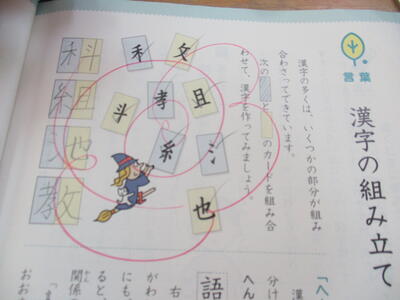 言葉
漢字の組み立て
漢字の多くは、いくつかの部分が組み
合わさってできています。
次の
と
のカードを組み合
わせて、漢字を作ってみましょう。
禾
文
斗
孝
且
糸
氵
也
科
組
池
教
語